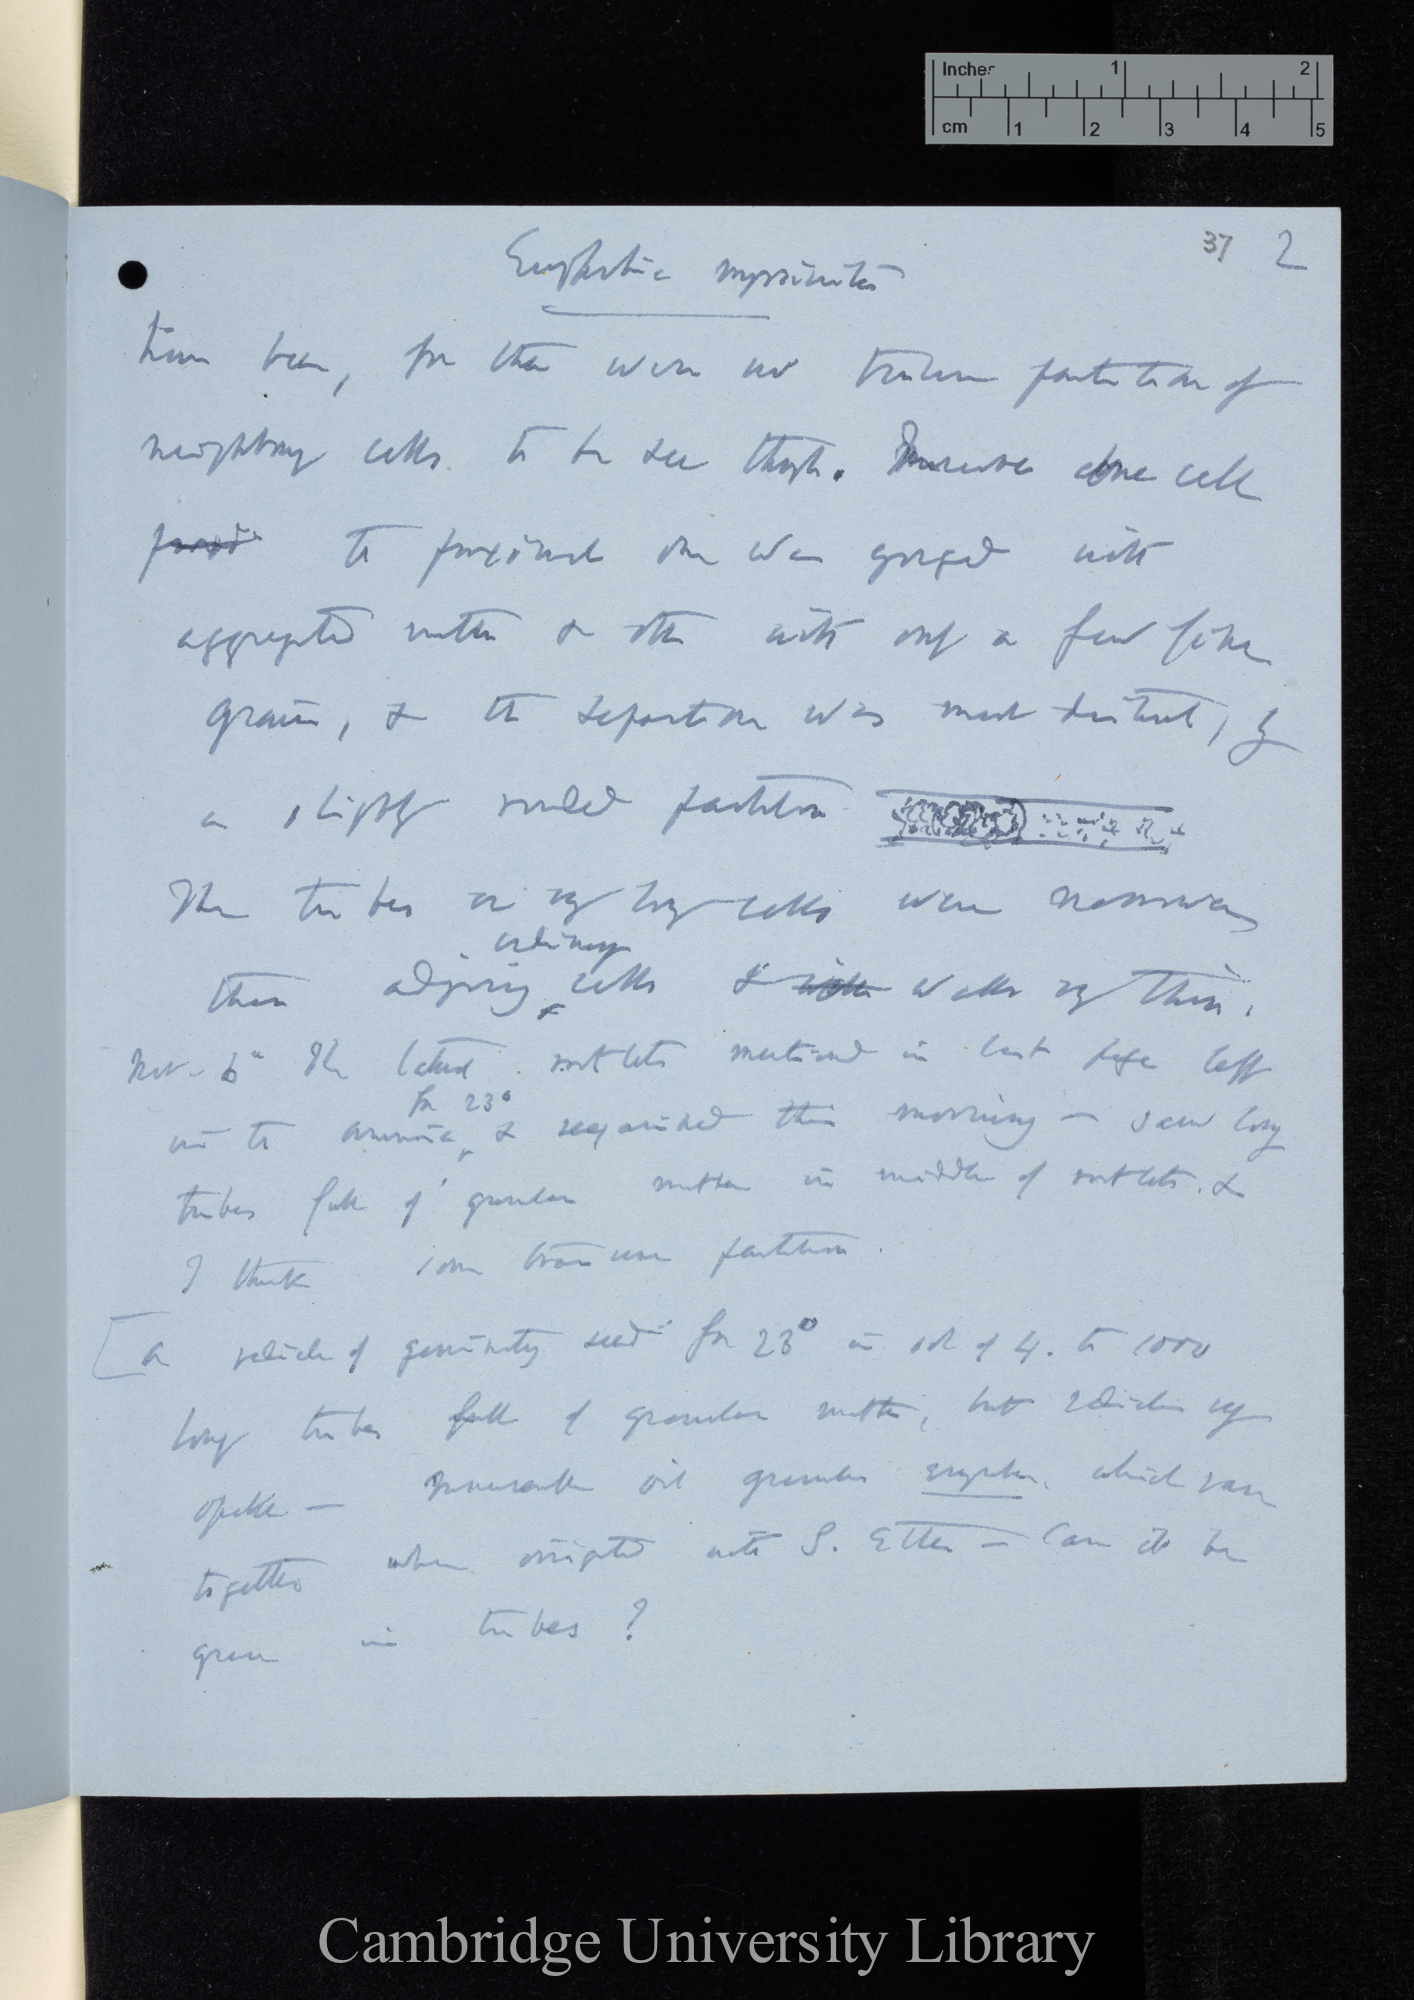 Inches 1 2
cm 1 2 3 4 5
37 2
Euphorbia myrsinites
been, for there were no transverse partition of
neighbouring cells to be see through. Moreover one cell
to proximal one was gorged with
aggregated matter & other with only a few fine
grains, & the separation was most distinct, by
a slightly rounded partition
The tubes or cells were narrower
than adjoining ordinary cells & walls very thin.
Nov. 6th The lateral rootlets mentioned in last page left
in C. ammonia for 23° & reexamined this morning — saw long
tubes full of granular matter in middle of rootlets. &
I think some transverse partitions.
[a radicle of germinating seed for 23° in sol of 4. to 1000
long tubes full of granular matter, but radicle very
opake — innumerable oil granules which ran
together when irrigated with S. Ether — Can it be
in tubes?
Cambridge University Library